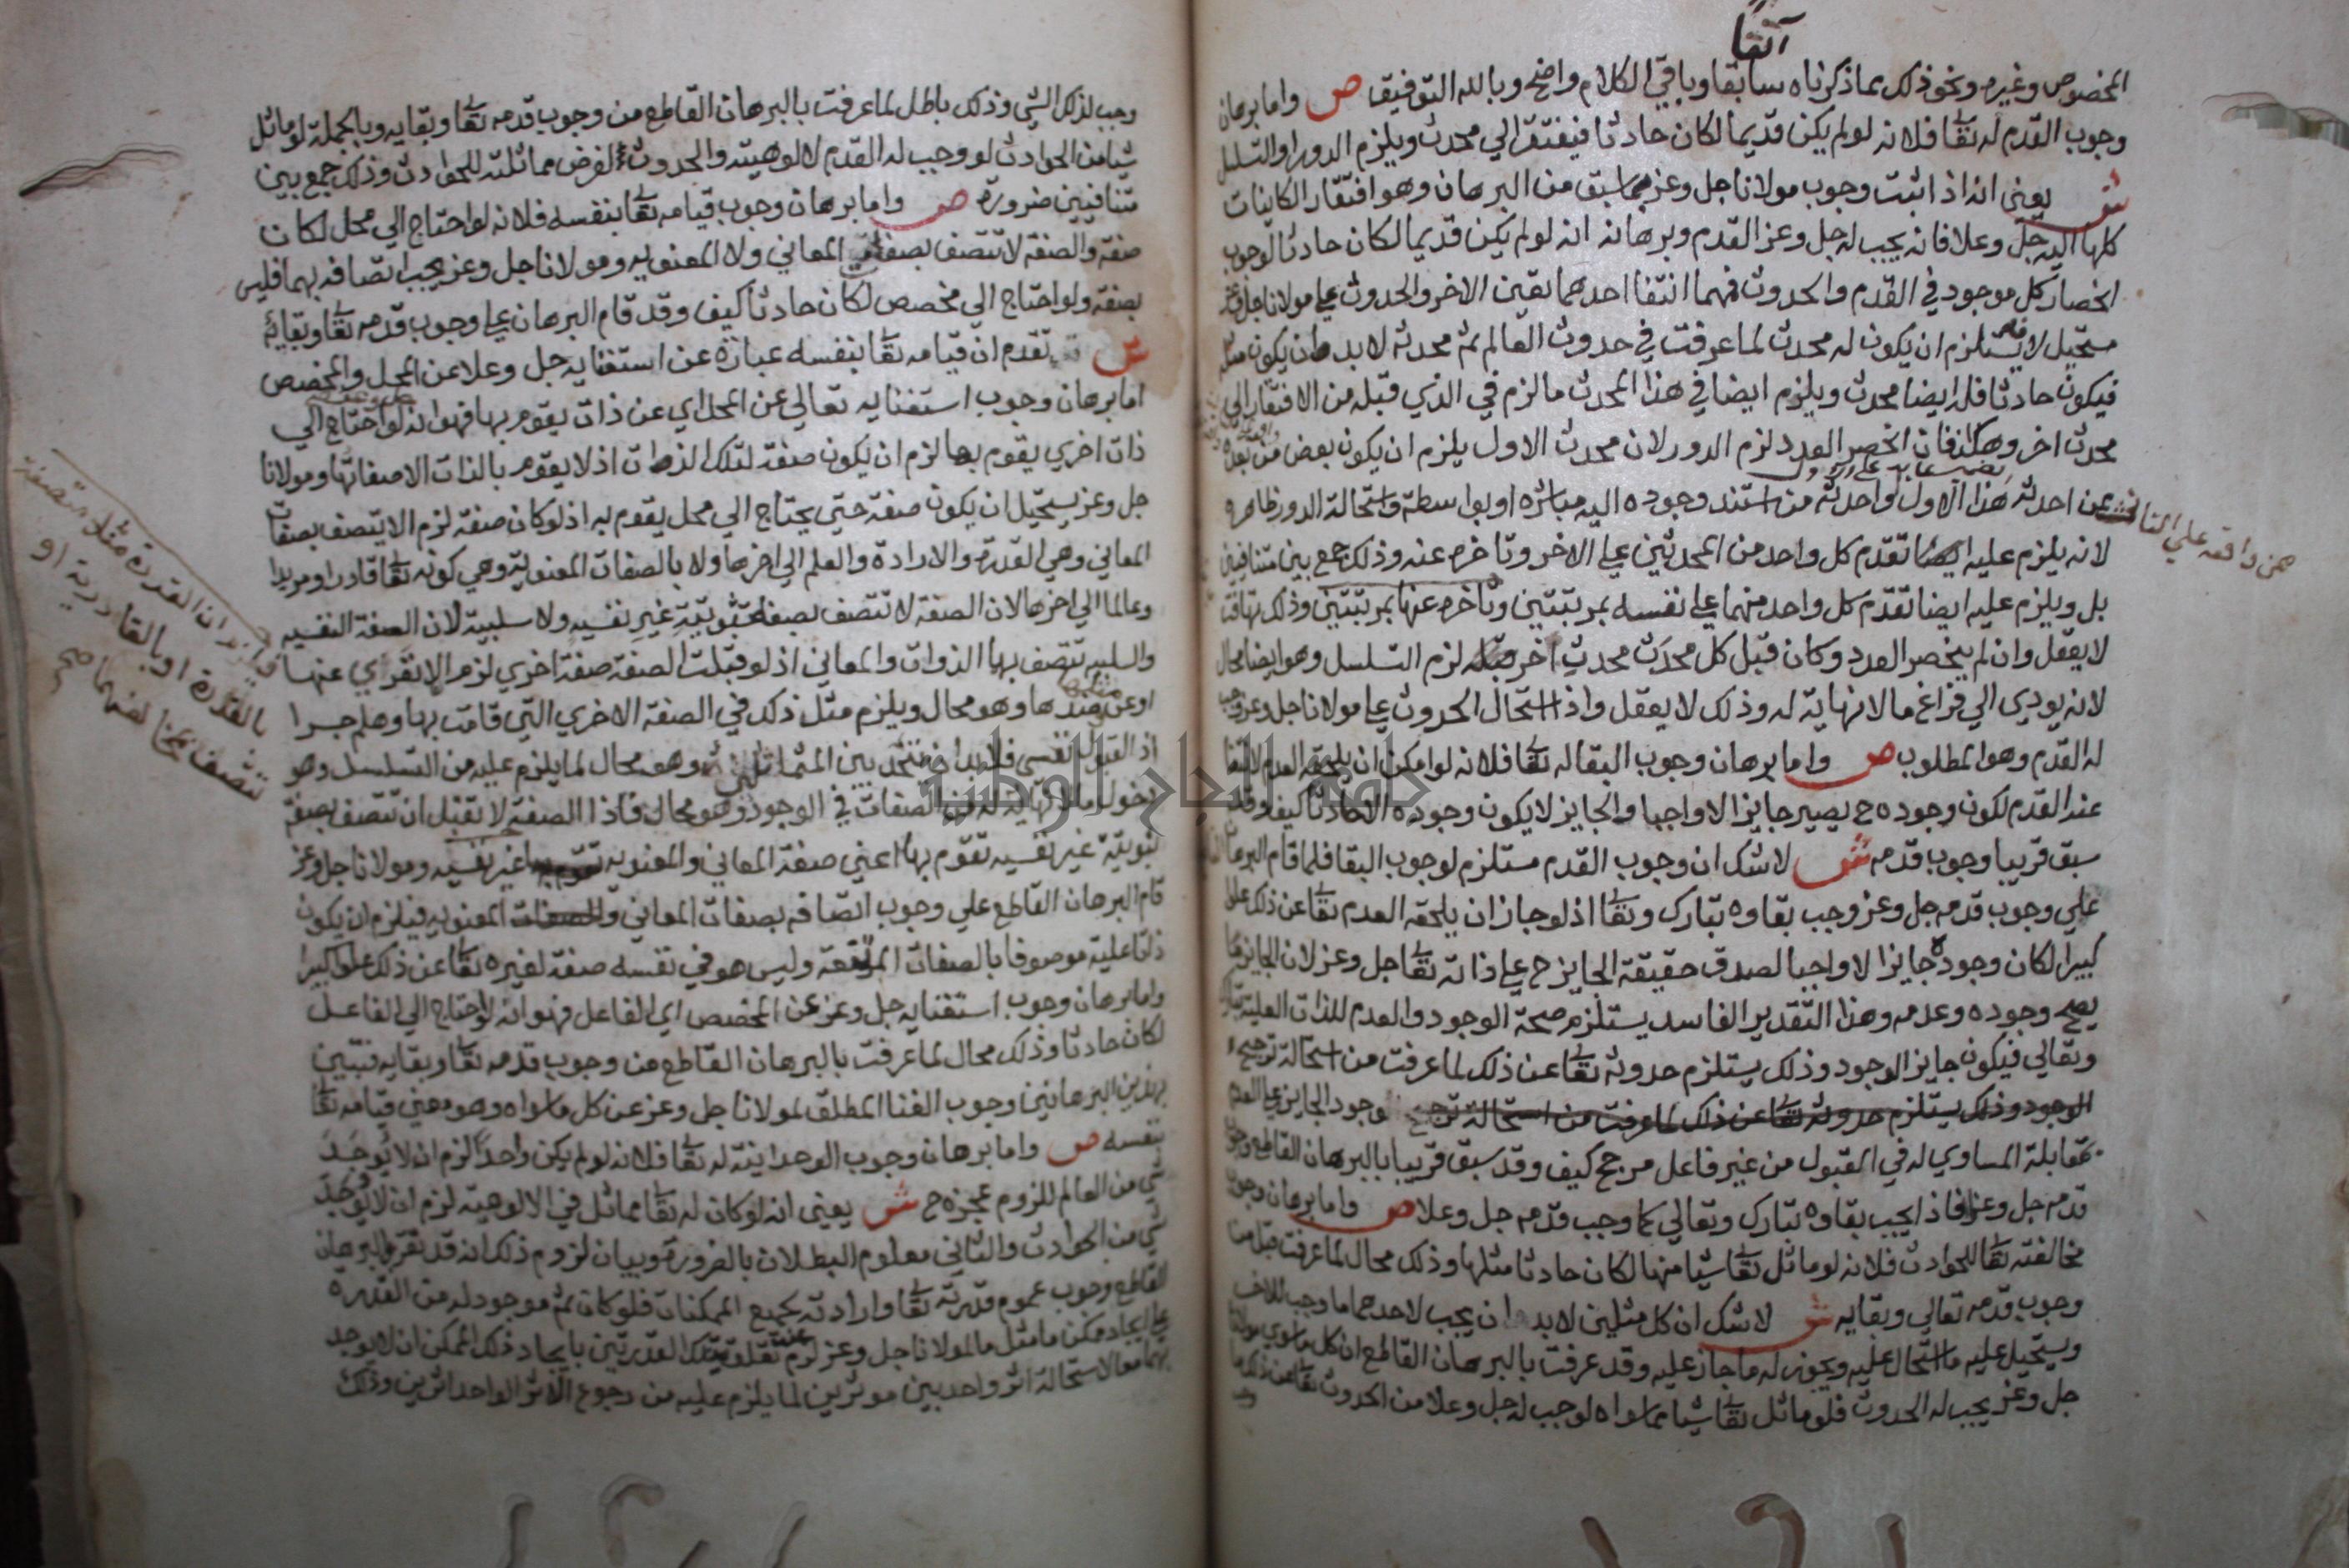 آنفا
المخصوص وغيره ونحو ذلك مما ذكرناه سابقا وباقي الكلام واضح وبالله التوفيق ص واما برهان
وجوب القدم له تعا فلانه لو لم يكن قديما لكان حادثا فيفتقر الي محدث ويلزم الدور او التسلسل
ش يعني انه اذا اثبت وجوب مولانا جل وعز مما سبق من البرهان وهو افتقار الكاينات
كلها اليه جل وعلا فانه يجب له جل وعز القدم وبرهانه انه لو لم يكن قديما لكان حادثا لوجوب
انحصار كل موجود في القدم والحدوث فمهما انتفا احدهما تعين الاخر والحدوث علي مولانا جل وعز
مستحيل لانه يستلزم ان يكون له محدث لما عرفت في حدوث العالم ثم محدثه لا بد ان يكون مثله
فيكون حادثا فله ايضا محدث ويلزم ايضا في هذا المحدث ما لزم في الذي قبله من الافتقار الي
محدث اخر وهكذا فان انحصر العدد لزم الدور لان محدث الاول يلزم ان يكون بعض من بعده
ممن احدثه هذا الاول او احدثه من استند وجوده اليه مباشرة او بواسطة واستحالة الدور ظاهرة
لانه يلزم عليه ايضا تقدم كل واحد من المحدثين علي الاخر وتاخره عنه وذلك جمع بين متنافيين
بل ويلزم عليه ايضا تقدم كل واحد منهما علي نفسه بمرتبتين وتاخره عنها بمرتبتين وذلك تهافت
لا يعقل وان لم ينحصر العدد وكان قبل كل محدث محدث اخر قبله لزم التسلسل وهو ايضا محال
لانه يودي الي فراغ ما لا نهاية له وذلك لا يعقل واذا استحال الحدوث علي مولانا جل وعز وجب
له القدم وهو المطلوب ص واما برهان وجوب البقا له تعا فلانه لو امكن ان يلحقه العدم لانتفا
عنه القدم لكون وجوده ح يصير جايزا لا واجبا والجايز لا يكون وجوده الا حادثا كيف وقد
سبق قريبا وجوب قدمه ش لا شك ان وجوب القدم مستلزم لوجوب البقا فلما قام البرهان
علي وجوب قدمه جل وعز وجب بقاوه تبارك وتعا اذ لو جاز ان يلحقه العدم تعا عن ذلك علوا
كبيرا لكان وجوده جايزا لا واجبا لصدق حقيقة الجايز ح علي ذاته تعا جل وعز لان الجايز ما
يصح وجوده وعدمه وهذا التقدير الفاسد يستلزم صحة الوجود والعدم للذات العلية تبارك
وتعالي فيكون جايز الوجود وذلك يستلزم حدوثه تعا عن ذلك لما عرفت من استحالة ترجيح
الوجود وذلك يستلزم حدوثه تعا عن ذلك لما عرفت من استحالة ترجيح وجود الجايز علي العدم
مقابله المساوي له في القبول من غير فاعل مرجح كيف وقد سبق قريبا بالبرهان القاطع وجوب
قدمه جل وعز فاذا يجب بقاوه تبارك وتعالي كما وجب قدمه جل وعلا ص واما برهان وجوب
مخالفته تعا للحوادث فلانه لو ماثل تعا شيا منها لكان حادثا مثلها وذلك محال لما عرفت قبل من
وجوب قدمه تعالي وبقايه ش لا شك ان كل مثلين لا بد ان يجب لاحدهما ما وجب للاخر
ويستحيل عليه ما استحال عليه ويجوز له ما جاز عليه وقد عرفت بالبرهان القاطع ان كل ما سوي مولانا
جل وعز يجب له الحدوث فلو ماثل تعا شيا مما سواه لوجب له جل وعلا من الحدوث تعا عن ذلك ما
وجب لذلك الشي وذلك باطل لما عرفت بالبرهان القاطع من وجوب قدمه تعا وبقايه وبالجملة لو ماثل
شيا من الحوادث لو وجب له القدم لالوهيته والحدوث لفرض مماثلته للحوادث وذلك جمع بين
متنافيين ضرورة ص واما برهان وجوب قيامه تعا بنفسه فلانه لو احتاج الي محل لكان
صفة والصفة لا تتصف بصفات المعاني ولا المعنويه ومولانا جل وعز يجب اتصافه بهما فليس
بصفة ولو احتاج الي مخصص لكان حادثا كيف وقد قام البرهان علي وجوب قدمه تعا وبقايه
ش تقدم ان قيامه تعا بنفسه عبارة عن استغنايه جل وعلا عن المحل والمخصص
اما برهان وجوب استغنايه تعالي عن المحل اي عن ذات يقوم بها فهو انه لو احتاج الي
ذات اخري يقوم بها لزم ان يكون صفة لتلك الذات اذ لا يقوم بالذات الا صفاتها ومولانا
جل وعز يستحيل ان يكون صفة حتي يحتاج الي محل يقوم به اذ لو كان صفة لزم الا يتصف بصفات
المعاني وهي القدرة والارادة والعلم الي اخرها ولا بالصفات المعنوية وهي كونه تعا قادرا ومريدا
وعالما الي اخرها لان الصفة لا تتصف بصفة ثبوتية غير نفسيه ولا سلبية لان الصفة النفسيه
والسلبيه تتصف بها الذوات والمعاني اذ لو قبلت الصفة صفة اخري لزم الا تعري عنها
او عن ضدها وهو محال ويلزم مثل ذلك في الصفة الاخري التي قامت بها وهلم جرا
اذ القبول نفسي فلا بد ان يتحد بين المتماثلين وهو محال لما يلزم عليه من التسلسل وهو
دخول ما لا نهاية له من الصفات في الوجود وهو محال فاذا الصفة لا تقبل ان تتصف بصفة
ثبوتية غير نفسيه تقوم بها اعني صفة المعاني والمعنويه غير نفسيه ومولانا جل وعز
قام البرهان القاطع علي وجوب اتصافه بصفات المعاني والصفات المعنويه فيلزم ان يكون
ذاتا عليه موصوفا بالصفات المرتفعة وليس هو في نفسه صفة لغيره تعا عن ذلك علوا كبيرا
واما برهان وجوب استغنايه جل وعز عن المخصص اي الفاعل فهو انه لو احتاج الي الفاعل
لكان حادثا وذلك محال لما عرفت بالبرهان القاطع من وجوب قدمه تعا وبقايه فتبين
بهذين البرهانين وجوب الغنا المطلق لمولانا جل وعز عن كل ما سواه وهو معني قيامه تعا
بنفسه ص واما برهان وجوب الوحدانية له تعا فلانه لو لم يكن واحدا لزم ان لا يوجد
شي من العالم للزوم عجزه ح ش يعني انه لو كان له تعا مماثل في الالوهية لزم ان لا يوجد
شي من الحوادث والثاني معلوم البطلان بالضرورة وبيان لزوم ذلك انه قد تقرر بالبرهان
القاطع وجوب عموم قدرته تعا وارادته لجميع الممكنات فلو كان ثم موجود له من القدرة
علي ايجاد ممكن ما مثل ما لمولانا جل وعز لزم عند تعلق تلك القدرتين بايجاد ذلك الممكن ان لا يوجد
بهما معا لاستحالة اثر واحد بين موثرين لما يلزم عليه من رجوع الاثر الواحد اثرين وذلك
جامعة النجاح الوطنية